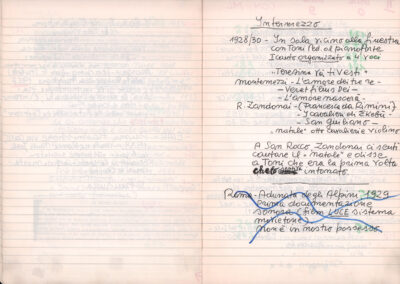 Intermezzo
1928/30 - In sala vicino alla finestra
con Toni Ped. al pianoforte
I canto organizzato a 4 voci
- Teresina vá ti vesti -
Montemezzi - L'amore dei tre re -
- Veret filius Dei -
- L'amore nascerá -
R. Zandonai - (Francesca da Rimini)
I cavalieri di Ekebù -
- San Giuliano -
Natale" otto cavalieri e violino
A San Rocco Zandonai ci sentì
cantare il "Natale" e disse
a Toni che era la prima volta
che lo intonato.
Roma - Adunata degli Alpini 1929
prima documentazione
sonora (film LUCE sistema
movietone)
non è in nostro possesso